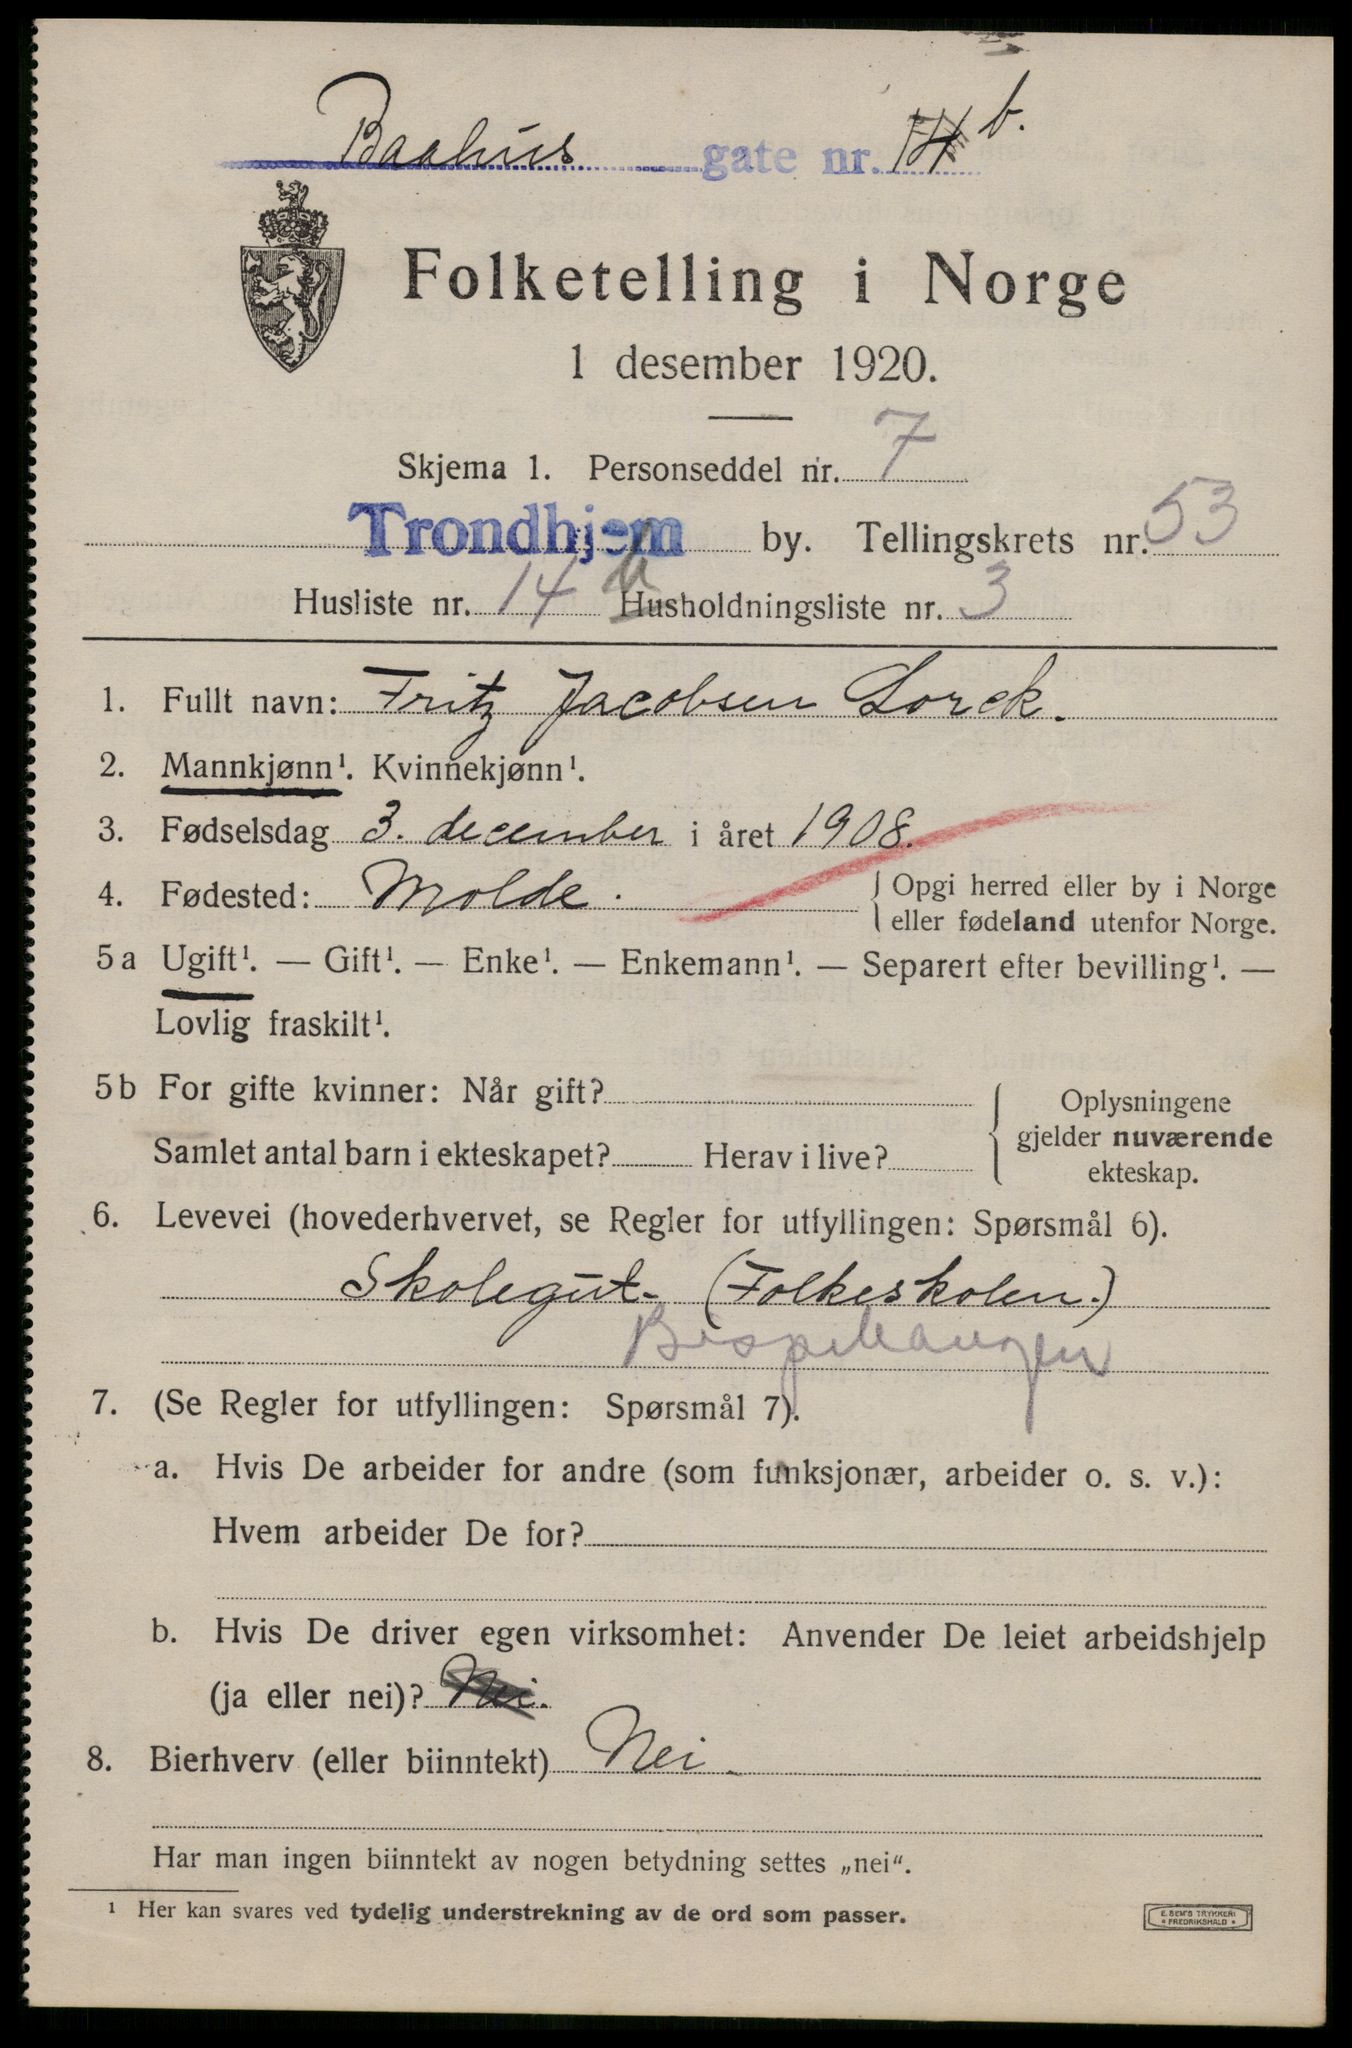 Baahus gate nr. 14 b.
Folketelling i Norge
1 desember 1920.
Skjema 1. Personseddel nr. 7
Trondhjem by. Tellingskrets nr. 53
Husliste nr. 14 b Husholdningsliste nr. 3
1. Fullt navn: Fritz Jacobsen Lorck.
2. Mannkjønn¹. Kvinnekjønn¹.
3. Fødselsdag 3. december i året 1908.
4. Fødested: Molde. Opgi herred eller by i Norge
eller fødeland utenfor Norge.
5a Ugift¹. — Gift¹. — Enke¹. — Enkemann¹. — Separert efter bevilling¹. —
Lovlig fraskilt¹.
5b For gifte kvinner: Når gift? Oplysningene
gjelder nuværende
Samlet antal barn i ekteskapet? Herav i live? ekteskap.
6. Levevei (hovederhvervet, se Regler for utfyllingen: Spørsmål 6).
Skolegut- (Folkeskolen.)
Bispehaugen
7. (Se Regler for utfyllingen: Spørsmål 7).
a. Hvis De arbeider for andre (som funksjonær, arbeider o. s. v.):
Hvem arbeider De for?
b. Hvis De driver egen virksomhet: Anvender De leiet arbeidshjelp
(ja eller nei)? Nei.
8. Bierhverv (eller biinntekt) Nei.
Har man ingen biinntekt av nogen betydning settes „nei“.
¹ Her kan svares ved tydelig understrekning av de ord som passer.
E. SEM'S TRYKKERI
• FREDRIKSHALD •